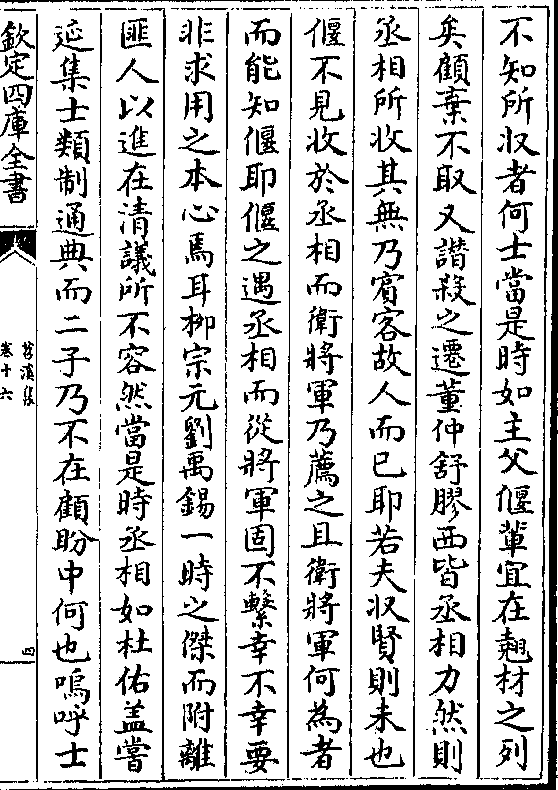 不知所收者何士當是時如主父偃輩宜在翹材之列
矣顧棄不取又譖殺之遷董仲舒膠西皆丞相力然則
丞相所收其無乃賔客故人而已耶若夫収賢則未也
偃不見收於丞相而衛將軍乃薦之且衛將軍何為者
而能知偃耶偃之遇丞相而從將軍固不繫幸不幸要
非求用之本心焉耳栁宗元劉禹錫一時之傑而附離
匪人以進在清議所不容然當是時丞相如杜佑盖嘗
延集士類制通典而二子乃不在顧盼中何也嗚呼士
欽定四庫全書
苕溪集
卷十六
四